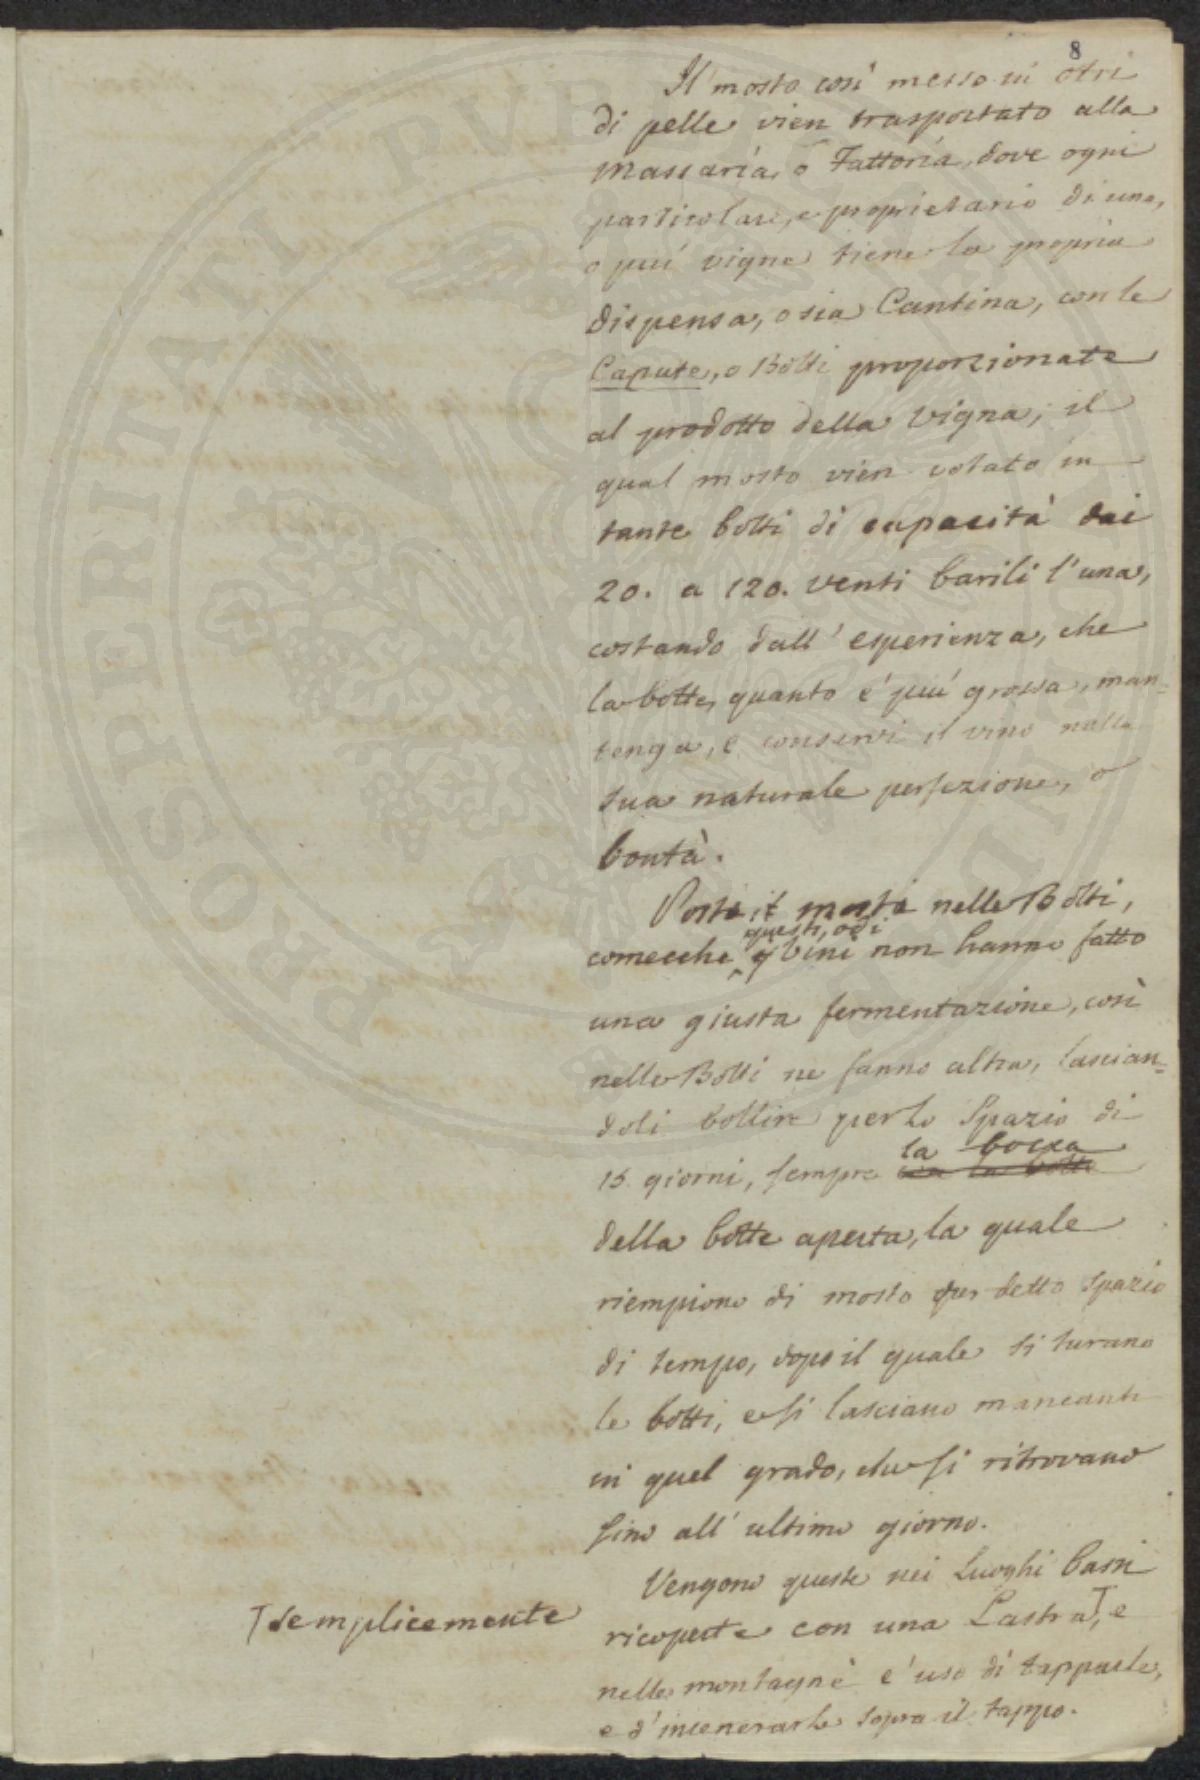 8
Il mosto così messo in otri
di pelle vien trasportato alla
Massaria, o Fattoria, dove ogni
particolare, e proprietario di una,
o più vigne tiene la propria
dispensa, o sia Cantina, con le
Capute, o Botti proporzionate
al prodotto della Vigna; il
qual mosto vien colato in
tante botti di capacità dai
20. a 120. venti barili l'una,
costando dall'esperienza, che
la botte, quanto e' più grossa, man=
tenga, e conservi il vino nella
sua naturale perfezione, o
bontà.
il nelle Botti,
questi, od i
comecche Vini non hanno fatto
una giusta fermentazione, così
nelle Botti ne fanno altra, lascian=
doli bollire per lo Spazio di
la bocca
15 giorni, sempre con la botte
della botte aperta, la quale
riempiono di mosto per detto Spazio
di tempo, dopo il quale si turano
le botti, e si lasciano mancanti
in quel grado, che si ritrovano
sino all'ultimo giorno.
Vengono queste nei Luoghi bassi
ricoperte con una Lastra⊤, e
⊤semplicemente
nelle montagne e' uso di tapparle,
e d'incenerarle sopra il tappo.
PROSPERITATI PVBLICAE